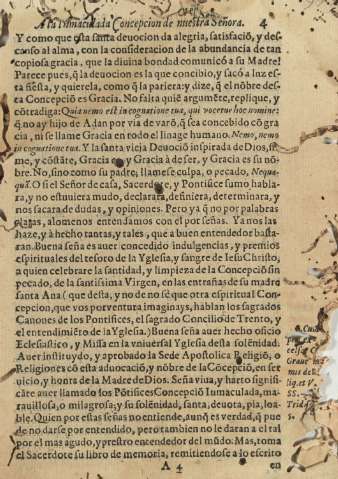 A la Inmaculada Concepcion de nuestra Señora. 4
Y como que esta santa deuocion da alegria, satisfació, y des-
canso al alma, con la consideracion de la abundancia de tan
copiosa gracia, que la diuina bondad comunicó a su Madre!
Parece pues, q̃ la deuocion es la que concibio, y sacó a luz es-
ta fiesta, y quierela, como q̃ la pariera: y dize, q̃ el nõbre des-
ta Concepció es Gracia. No falta quiẽ argumẽte, replique, y
cõtradiga: Quia nemo est in cognatione tua, qui vocetur hoc nomine:
q̃ no ay hijo de Adan por via de varõ, q̃ sea concebido cõ gra
cia, ni se llame Gracia en todo el linage humano. Nemo, nemo
in cognatione tua. Y la santa vieja Deuoció inspirada de Dios, fir
me, y cõstãte, Gracia es y Gracia à de ser, y Gracia es su nõ-
bre. No, sino como su padre; llamese culpa, o pecado, Nequa-
quã. O si el Señor de casa, Sacerdote, y Pontifice sumo habla-
ra, y no estuuiera mudo, declarara, definiera, determinara, y
nos sacara de dudas, y opiniones. Pero ya q̃ no por palabras
platas, alomenos entendamos con el por señas. Ya nos las
haze, y à hecho tantas, y tales, que a buen entendedor basta-
ran. Buena seña es auer concedido indulgencias, y premios
espirituales del tesoro de la Yglesia, y sangre de Iesu Christo,
a quien celebrare la santidad, y limpieza de la Concepciõ sin
pecado, de la santissima Virgen, en las entrañas de su madre
santa Ana (que desta, y no de no sé que otra espiritual Con-
cepcion, que vos por ventura imaginays, hablan los sagrados
Canones de los Pontifices, el sagrado Concilio de Trento, y
el entendimiẽto de la Yglesia.) Buena seña auer hecho oficio
Eclesiastico, y Missa en la vniuersal Yglesia desta solẽnidad.
Auer instituydo, y aprobado la Sede Apostolica Religiõ, o
Religiones cõ esta aduocació, y nõbre de la Cõcepció, en ser
uicio, y honra de la Madre de Dios. Seña viua, y harto signifi-
cãte auer llamado los Põtifices Concepció Inmaculada, ma-
rauillosa, o milagrosa; y su solẽnidad, santa, deuota, pia, loa-
ble. Quien por estas señas no entiende, aunq̃ es verdad, q̃ pue
de no darse por entendido, pero tambien no le daran a el tal
por el mas agudo, y prestro entendedor del mũdo. Mas, toma
el Sacerdote su libro de memoria, remitiendose a lo escrito
A 4 en
Graue
mus
SS.
Trid